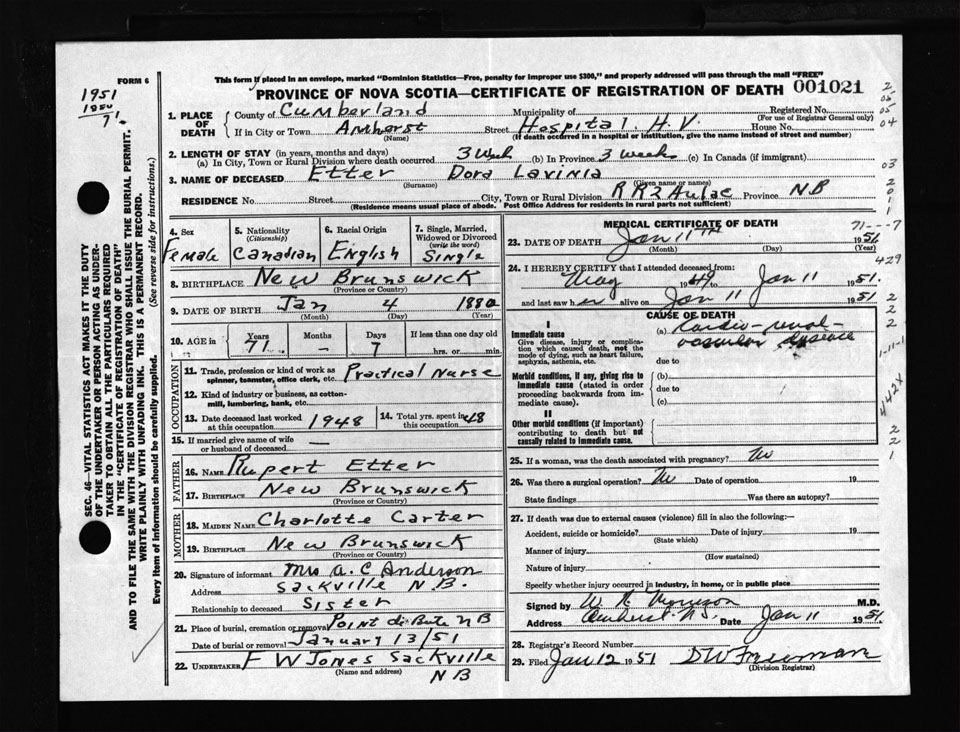 FORM 6
This form if placed in an envelope, marked "Dominion Statistics—Free, penalty for improper use $300," and properly addressed will pass through the mail "FREE"
PROVINCE OF NOVA SCOTIA—CERTIFICATE OF REGISTRATION OF DEATH 001021
1951
1880
71
1. PLACE OF DEATH
County of Cumberland Municipality of Registered No.
(For use of Registrar General only)
If in City or Town Amherst Street Hospital, H.V. House No.
(Name) (If death occurred in a hospital or institution, give the name instead of street and number)
2. LENGTH OF STAY (in years, months and days)
(a) In City, Town or Rural Division where death occurred 3 Week (b) In Province 3 weeks (c) In Canada (if immigrant)
3. NAME OF DECEASED Etter Dora Lavinia
(Surname) (Given name or names)
RESIDENCE No. Street City, Town or Rural Division RR2 Aulac Province NB
(Residence means usual place of abode. Post Office Address for residents in rural parts not sufficient)
4. Sex
Female
5. Nationality
(Citizenship)
Canadian
6. Racial Origin
English
7. Single, Married, Widowed or Divorced
(write the word)
Single
8. BIRTHPLACE New Brunswick
(Province or Country)
9. DATE OF BIRTH Jan 4 1880
(Month) (Day) (Year)
10. AGE in
Years Months Days If less than one day old
71 — 7 hrs. or min.
OCCUPATION
11. Trade, profession or kind of work as Practical Nurse
spinner, teamster, office clerk, etc.
12. Kind of industry or business, as cotton-
mill, lumbering, bank, etc.
13. Date deceased last worked at this occupation 1948
14. Total yrs. spent in this occupation 48
15. If married give name of wife or husband of deceased —
FATHER
16. NAME Rupert Etter
17. BIRTHPLACE New Brunswick
(Province or Country)
MOTHER
18. MAIDEN NAME Charlotte Carter
19. BIRTHPLACE New Brunswick
(Province or Country)
20. Signature of informant Mrs A. C Anderson
Address Sackville N.B.
Relationship to deceased Sister
21. Place of burial, cremation or removal Point de Bute NB
Date of burial or removal January 13/51
22. UNDERTAKER F W Jones Sackville
(Name and address)
N B
MEDICAL CERTIFICATE OF DEATH
23. DATE OF DEATH Jan 11TH 1951
(Month) (Day) (Year)
24. I HEREBY CERTIFY that I attended deceased from:
May 1949 to Jan 11 1951.
and last saw her alive on Jan 11 1951
CAUSE OF DEATH
I
Immediate cause
Give disease, injury or complication which caused death, not the mode of dying, such as heart failure, asphyxia, asthenia, etc.
(a) Cardio-renal-
vascular disease
due to
Morbid conditions, if any, giving rise to immediate cause (stated in order proceeding backwards from immediate cause).
(b)
due to
(c)
II
Other morbid conditions (if important) contributing to death but not causally related to immediate cause.
25. If a woman, was the death associated with pregnancy? No
26. Was there a surgical operation? No Date of operation 19
State findings Was there an autopsy?
27. If death was due to external causes (violence) fill in also the following:—
Accident, suicide or homicide? Date of injury 19
(State which)
Manner of injury
(How sustained)
Nature of injury
Specify whether injury occurred in industry, in home, or in public place
Signed by W R Morrison M.D.
Address Amherst N.S. Date Jan 11 1951.
28. Registrar's Record Number
29. Filed Jan 12 1951 D W Freeman
(Division Registrar)
SEC. 46—VITAL STATISTICS ACT MAKES IT THE DUTY
OF THE UNDERTAKER OR PERSON ACTING AS UNDER-
TAKER TO OBTAIN ALL THE PARTICULARS REQUIRED
IN THE "CERTIFICATE OF REGISTRATION OF DEATH"
AND TO FILE THE SAME WITH THE DIVISION REGISTRAR WHO SHALL ISSUE THE BURIAL PERMIT.
WRITE PLAINLY WITH UNFADING INK. THIS IS A PERMANENT RECORD.
Every item of information should be carefully supplied. (See reverse side for instructions.)
2
05
05
04
03
2
0
1
1
71---7
429
2
2
2
1-11-1
442X
2
2
1